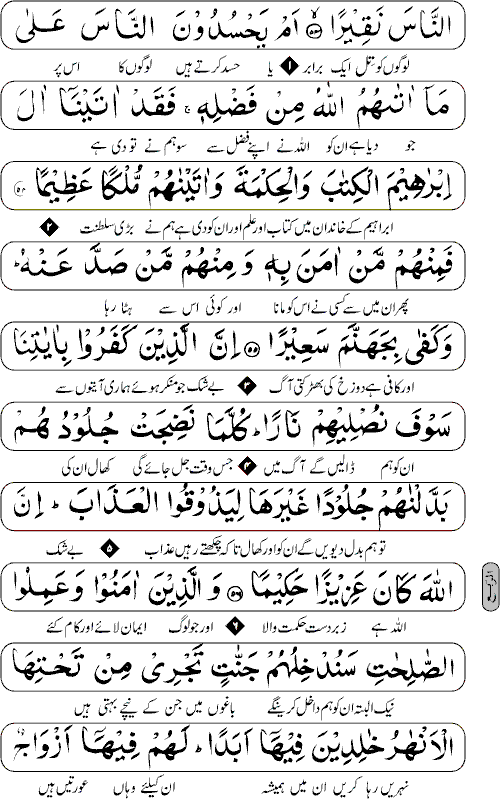 النَّاسَ نَقِيْرًا ﴿۵۳﴾ اَمْ يَحْسُدُوْنَ النَّاسَ عَلٰى
لوگوں کو تل ایک برابر ۱ یا حسد کرتے ہیں لوگوں کا اس پر
مَآ اٰتٰىهُمُ اللّٰهُ مِنْ فَضْلِهٖ ۚ فَقَدْ اٰتَيْنَآ اٰلَ
جو دیا ہے ان کو اللہ نے اپنے فضل سے سو ہم نے تو دی ہے
اِبْرٰهِيْمَ الْكِتٰبَ وَالْحِكْمَةَ وَاٰتَيْنٰهُمْ مُّلْكًا عَظِيْمًا ﴿۵۴﴾
ابراہیم کے خاندان میں کتاب اور علم اور ان کو دی ہے ہم نے بڑی سلطنت ۲
فَمِنْهُمْ مَّنْ اٰمَنَ بِهٖ وَمِنْهُمْ مَّنْ صَدَّ عَنْهُ ؕ
پھر ان میں سے کسی نے اس کو مانا اور کوئی اس سے ہٹا رہا
وَكَفٰى بِجَهَنَّمَ سَعِيْرًا ﴿۵۵﴾ اِنَّ الَّذِيْنَ كَفَرُوْا بِاٰيٰتِنَا
اور کافی ہے دوزخ کی بھڑکتی آگ ۳ بے شک جو منکر ہوئے ہماری آیتوں سے
سَوْفَ نُصْلِيْهِمْ نَارًا ؕ كُلَّمَا نَضِجَتْ جُلُوْدُهُمْ
ان کو ہم ڈالیں گے آگ میں ۴ جس وقت جل جائے گی کھال ان کی
بَدَّلْنٰهُمْ جُلُوْدًا غَيْرَهَا لِيَذُوْقُوا الْعَذَابَ ؕ اِنَّ
تو ہم بدل دیویں گے ان کو اور کھال تاکہ چکھتے رہیں عذاب ۵ بے شک
اللّٰهَ كَانَ عَزِيْزًا حَكِيْمًا ﴿۵۶﴾ وَالَّذِيْنَ اٰمَنُوْا وَعَمِلُوا
اللہ ہے زبردست حکمت والا ۶ اور جو لوگ ایمان لائے اور کام کئے
الصّٰلِحٰتِ سَنُدْخِلُهُمْ جَنّٰتٍ تَجْرِىْ مِنْ تَحْتِهَا
نیک البتہ ان کو ہم داخل کرینگے باغوں میں جن کے نیچے بہتی ہیں
الْاَنْهٰرُ خٰلِدِيْنَ فِيْهَآ اَبَدًا ؕ لَهُمْ فِيْهَآ اَزْوَاجٌ
نہریں رہا کریں ان میں ہمیشہ ان کیلئے وہاں عورتیں ہیں